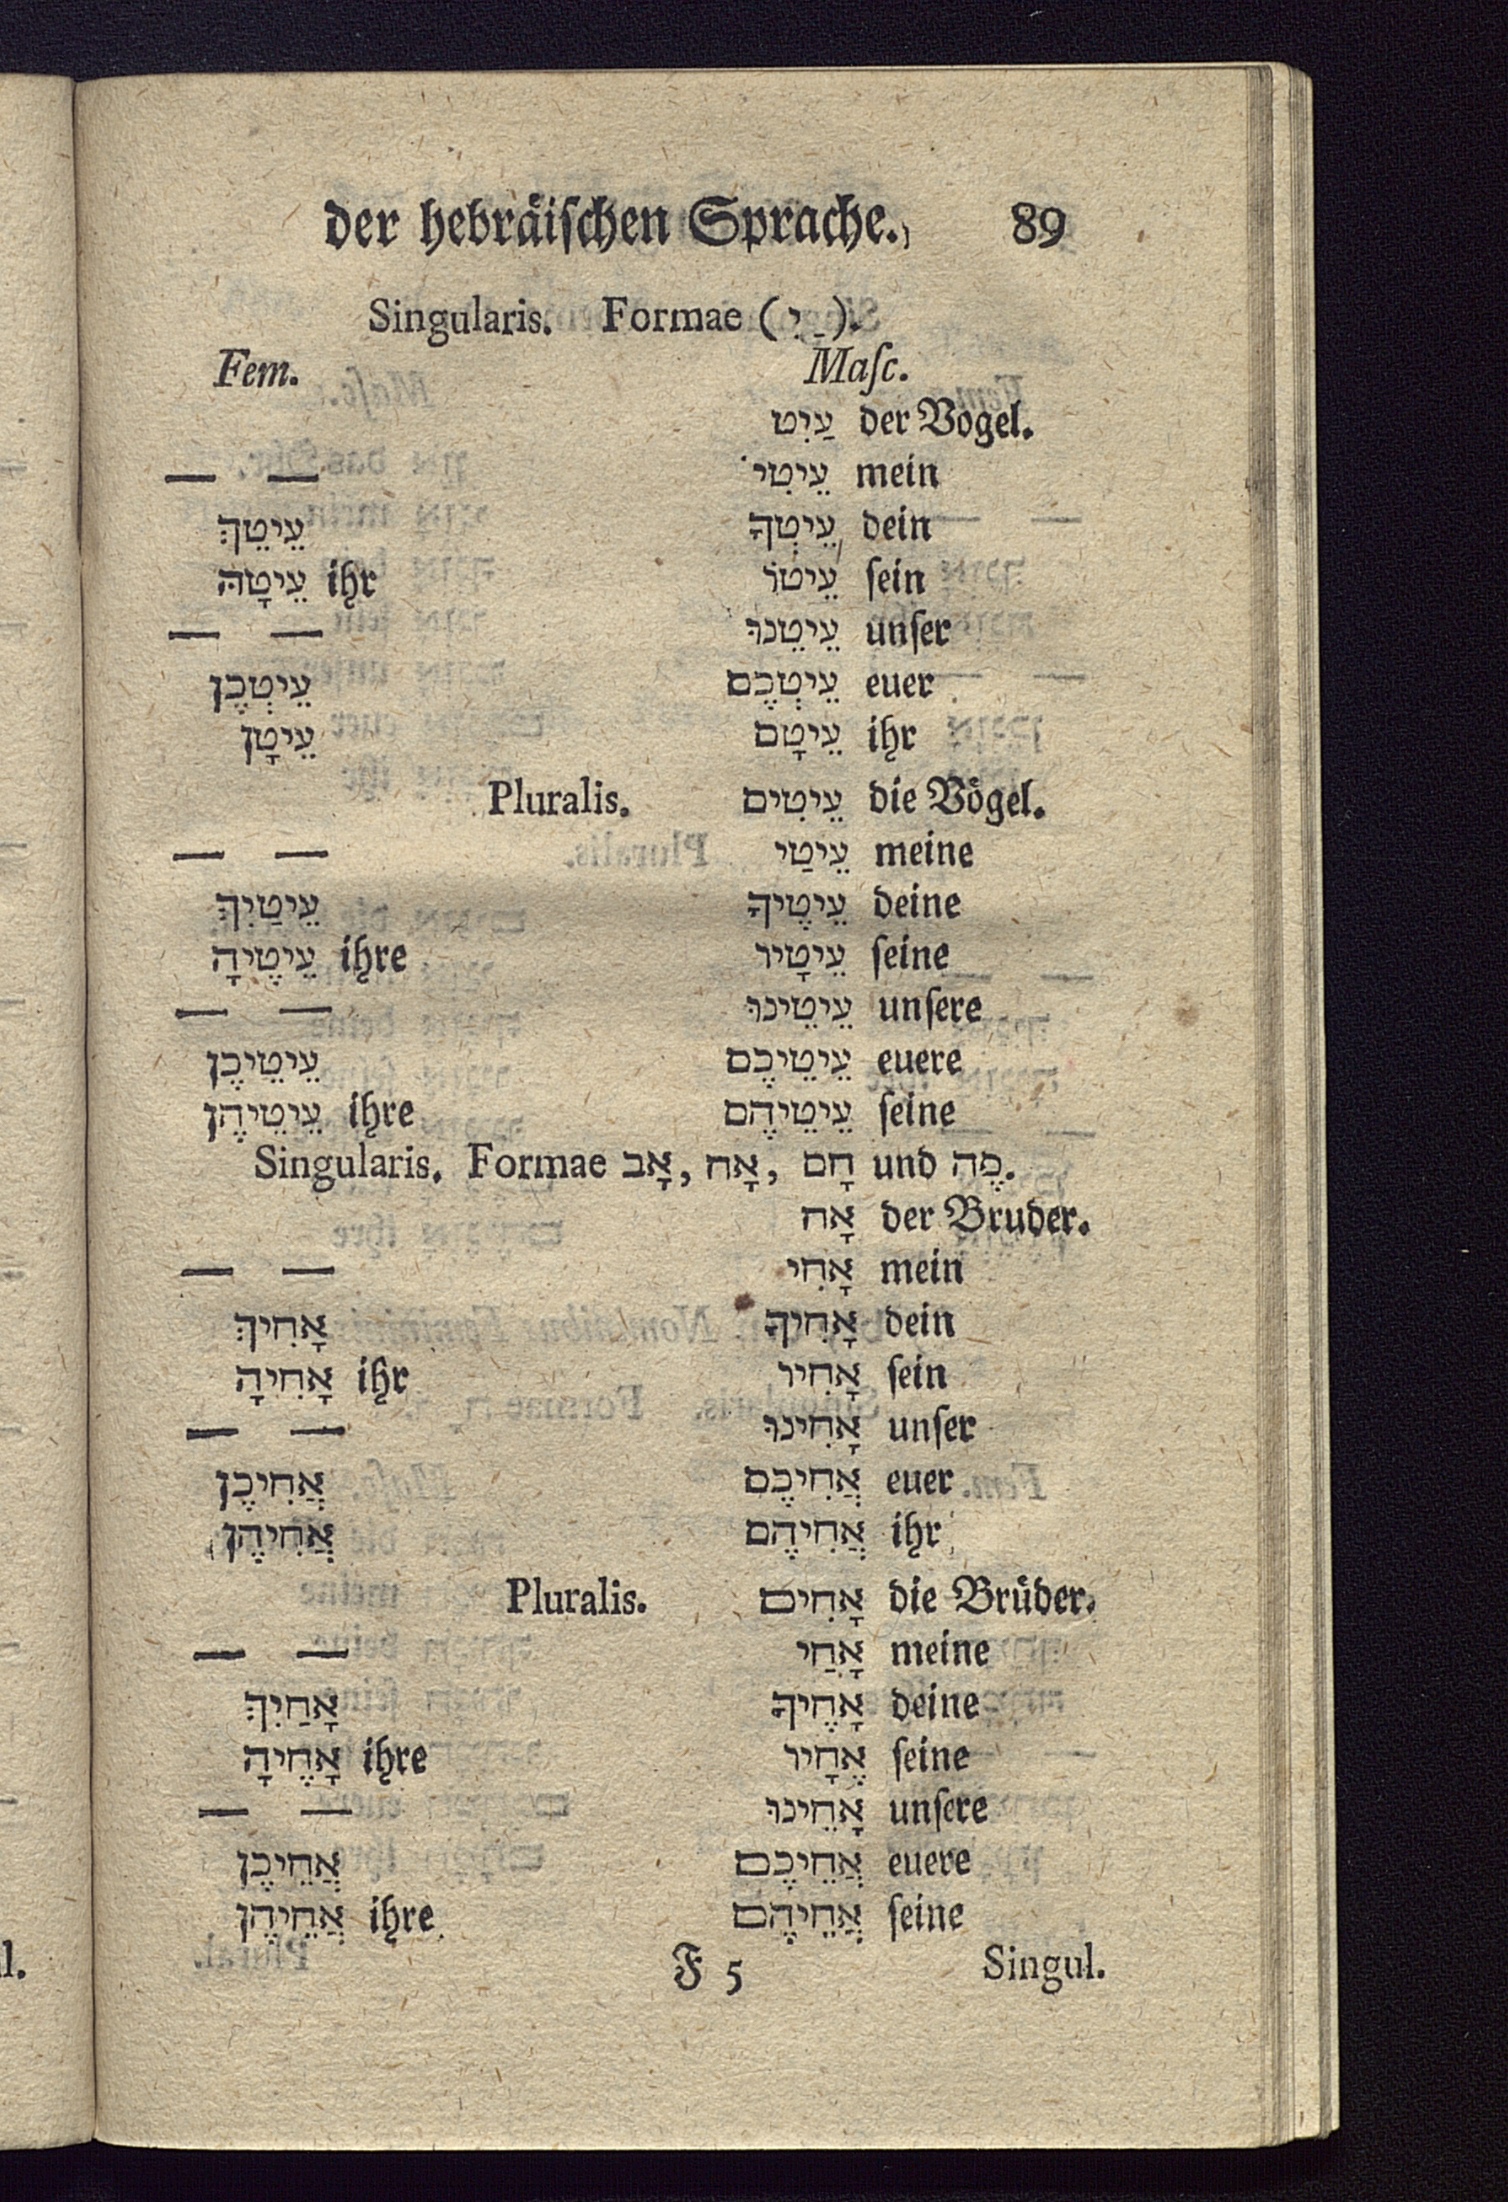 der hebräiſchen Sprache. 89
Singularis. Formae (ַ יִ).
Fem. Maſc.
עַיִט der Vogel.
— — עֵיטִי mein
עֵיטֵךְ עֵיטְךָ dein
עֵיטָהּ ihr עֵיטוֹ ſein
— — עֵיטֵנוּ unſer
עֵיטְכֶן עֵיטְכֶם euer
עֵיטָן עֵיטָם ihr
Pluralis. עֵיטִים die Vögel.
— — עֵיטַי meine
עֵיטַיִךְ עֵיטֶיךָ deine
עֵיטֶיהָ ihre עֵיטָיו ſeine
— — עֵיטֵינוּ unſere
עֵיטֵיכֶן עֵיטֵיכֶם euere
עֵיטֵיהֶן ihre עֵיטֵיהֶם ſeine
Singularis. Formae אָב, אָח, חָם und פֶה.
אָח der Bruder.
— — אָחִי mein
אָחִיךְ אָחִיךָ dein
אָחִיהָ ihr אָחִיו ſein
— — אָחִינוּ unſer
אֲחִיכֶן אֲחִיכֶם euer
אֲחִיהֶן אֲחִיהֶם ihr
Pluralis. אָחִים die Brüder.
— — אָחַי meine
אָחַיִךְ אָחֶיךָ deine
אָחֶיהָ ihre אֶחָיו ſeine
— — אָחֵינוּ unſere
אֲחֵיכֶן אֲחֵיכֶם euere
אֲחֵיהֶן ihre אֲחֵיהֶם ſeine
F 5 Singul.